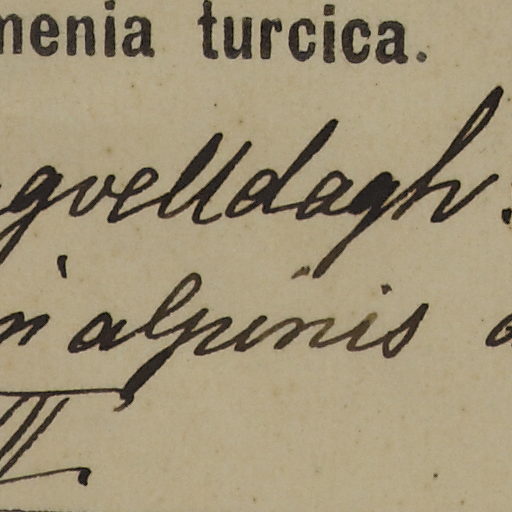 menia turcica.
gvelldagh:
in alpinis